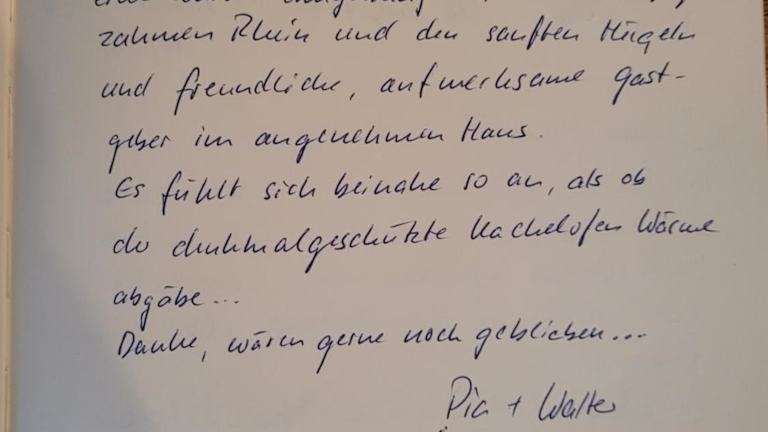 zahmen Rhein und den sanften Hügeln
und freundliche, aufmerksame Gast-
geber im angenehmen Haus.
Es fühlt sich beinahe so an, als ob
der denkmalgeschützte Kachelofen Wärme
abgäbe...
Danke, wären gerne noch geblieben...
Pia + Walter